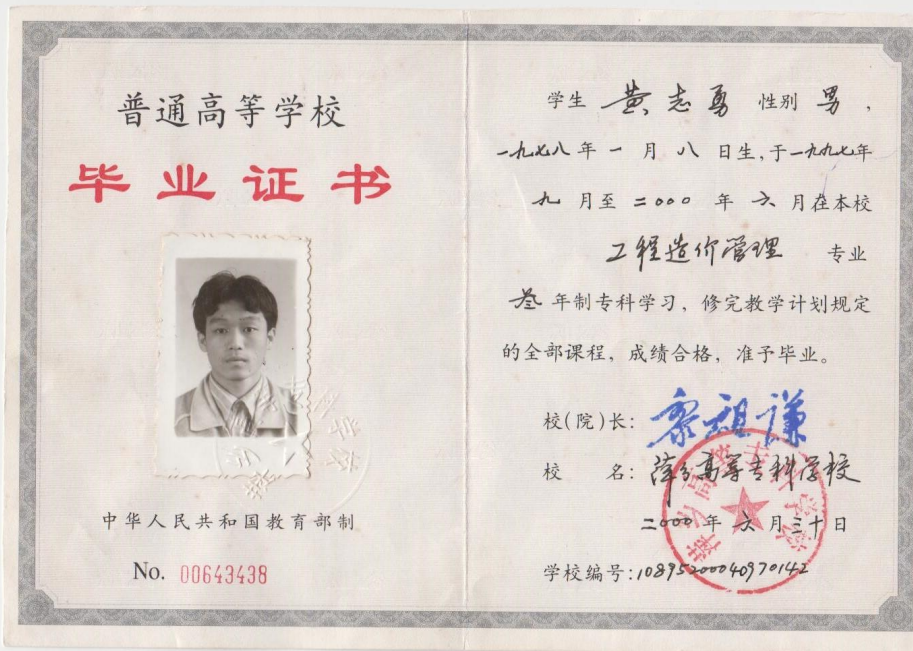 普通高等学校
毕业证书
中华人民共和国教育部制
No. 00643438
学生 黄志勇 性别 男，
一九七八年一月八日生，于一九九七年
九月至二〇〇〇年六月在本校
工程造价管理 专业
叁年制专科学习，修完教学计划规定
的全部课程，成绩合格，准予毕业。
校(院)长：黎祖谦
校 名：萍乡高等专科学校
二〇〇〇年六月三十日
学校编号：10895200040970142
萍乡高等专科学校